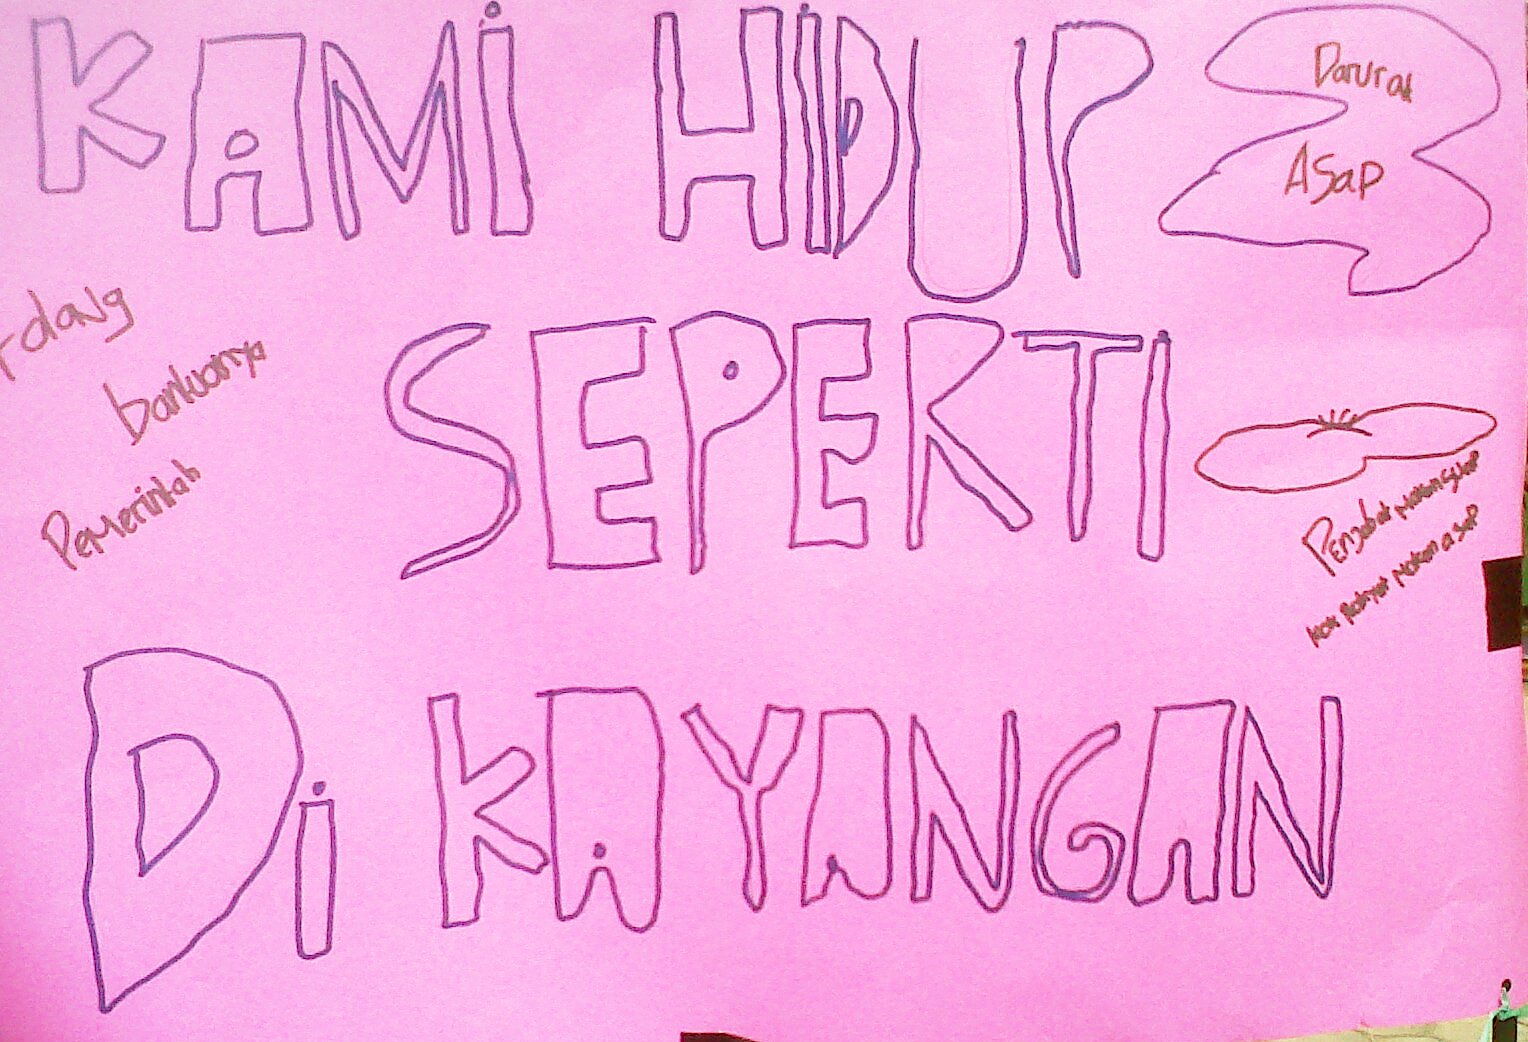 KAMi HIDUP
Darurat
ASap
SEPERTI
bantuanya
Pemerintah
Penjabat makan suap
kok Rakyat makan asap
Di KAYANGAN